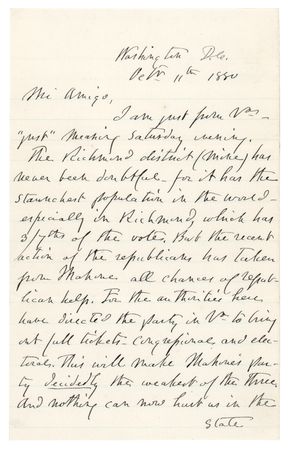 Washington D.C.
Octr 11th 1880
Mi Amigo,
I am just from Va-
"just" meaning Saturday evening.
The Richmond district (mine) has
never been doubtful. for it has the
staunchest population in the world-
especially in Richmond, which has
3/7ths of the vote. But the recent
action of the republicans has taken
from Mahone all chances of repub-
lican help. For the authorities here
have directed the party in Va to bring
out full tickets- congressional and elec-
torals. This will make Mahone's par-
ty decidedly the weakest of the three
and nothing can now hurt us in the
State